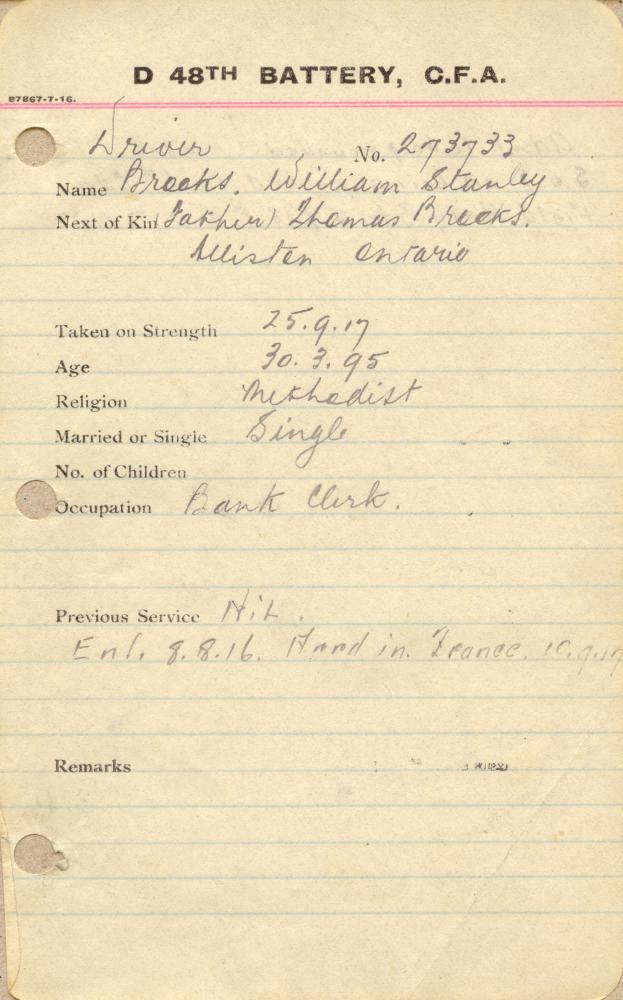 D 48TH BATTERY, C.F.A.
87867-7-16.
Driver No. 273733
Name Brooks. William Stanley
Next of Kin (Father) Thomas Brooks.
Alliston Ontario
Taken on Strength 25.9.17
Age 30.3.95
Religion Methodist
Married or Single Single
No. of Children
Occupation Bank Clerk.
Previous Service Nil.
Enl. 8.8.16. in. France. 10.9.17
Remarks